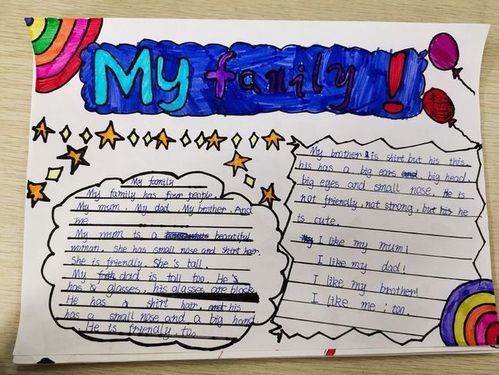 My family!
My family
My family has four people.
My mum. My dad. My brother. And
me
My mum is a beautiful
woman. she has small nose and shirt hair.
She is friendly. She's tall.
My dad is tall too. He's
has a glasses, his glasses are black.
He has a shirt hair. his
has a small nose and a big hand
He is friendly to.
My brother is shirt but his this.
his has a big ears big head,
big eyes and small nose. He is
not friendly, not strong, but he
is cute.
I like my mum!
I like my dad!
I like my brother!
I like me ; too.